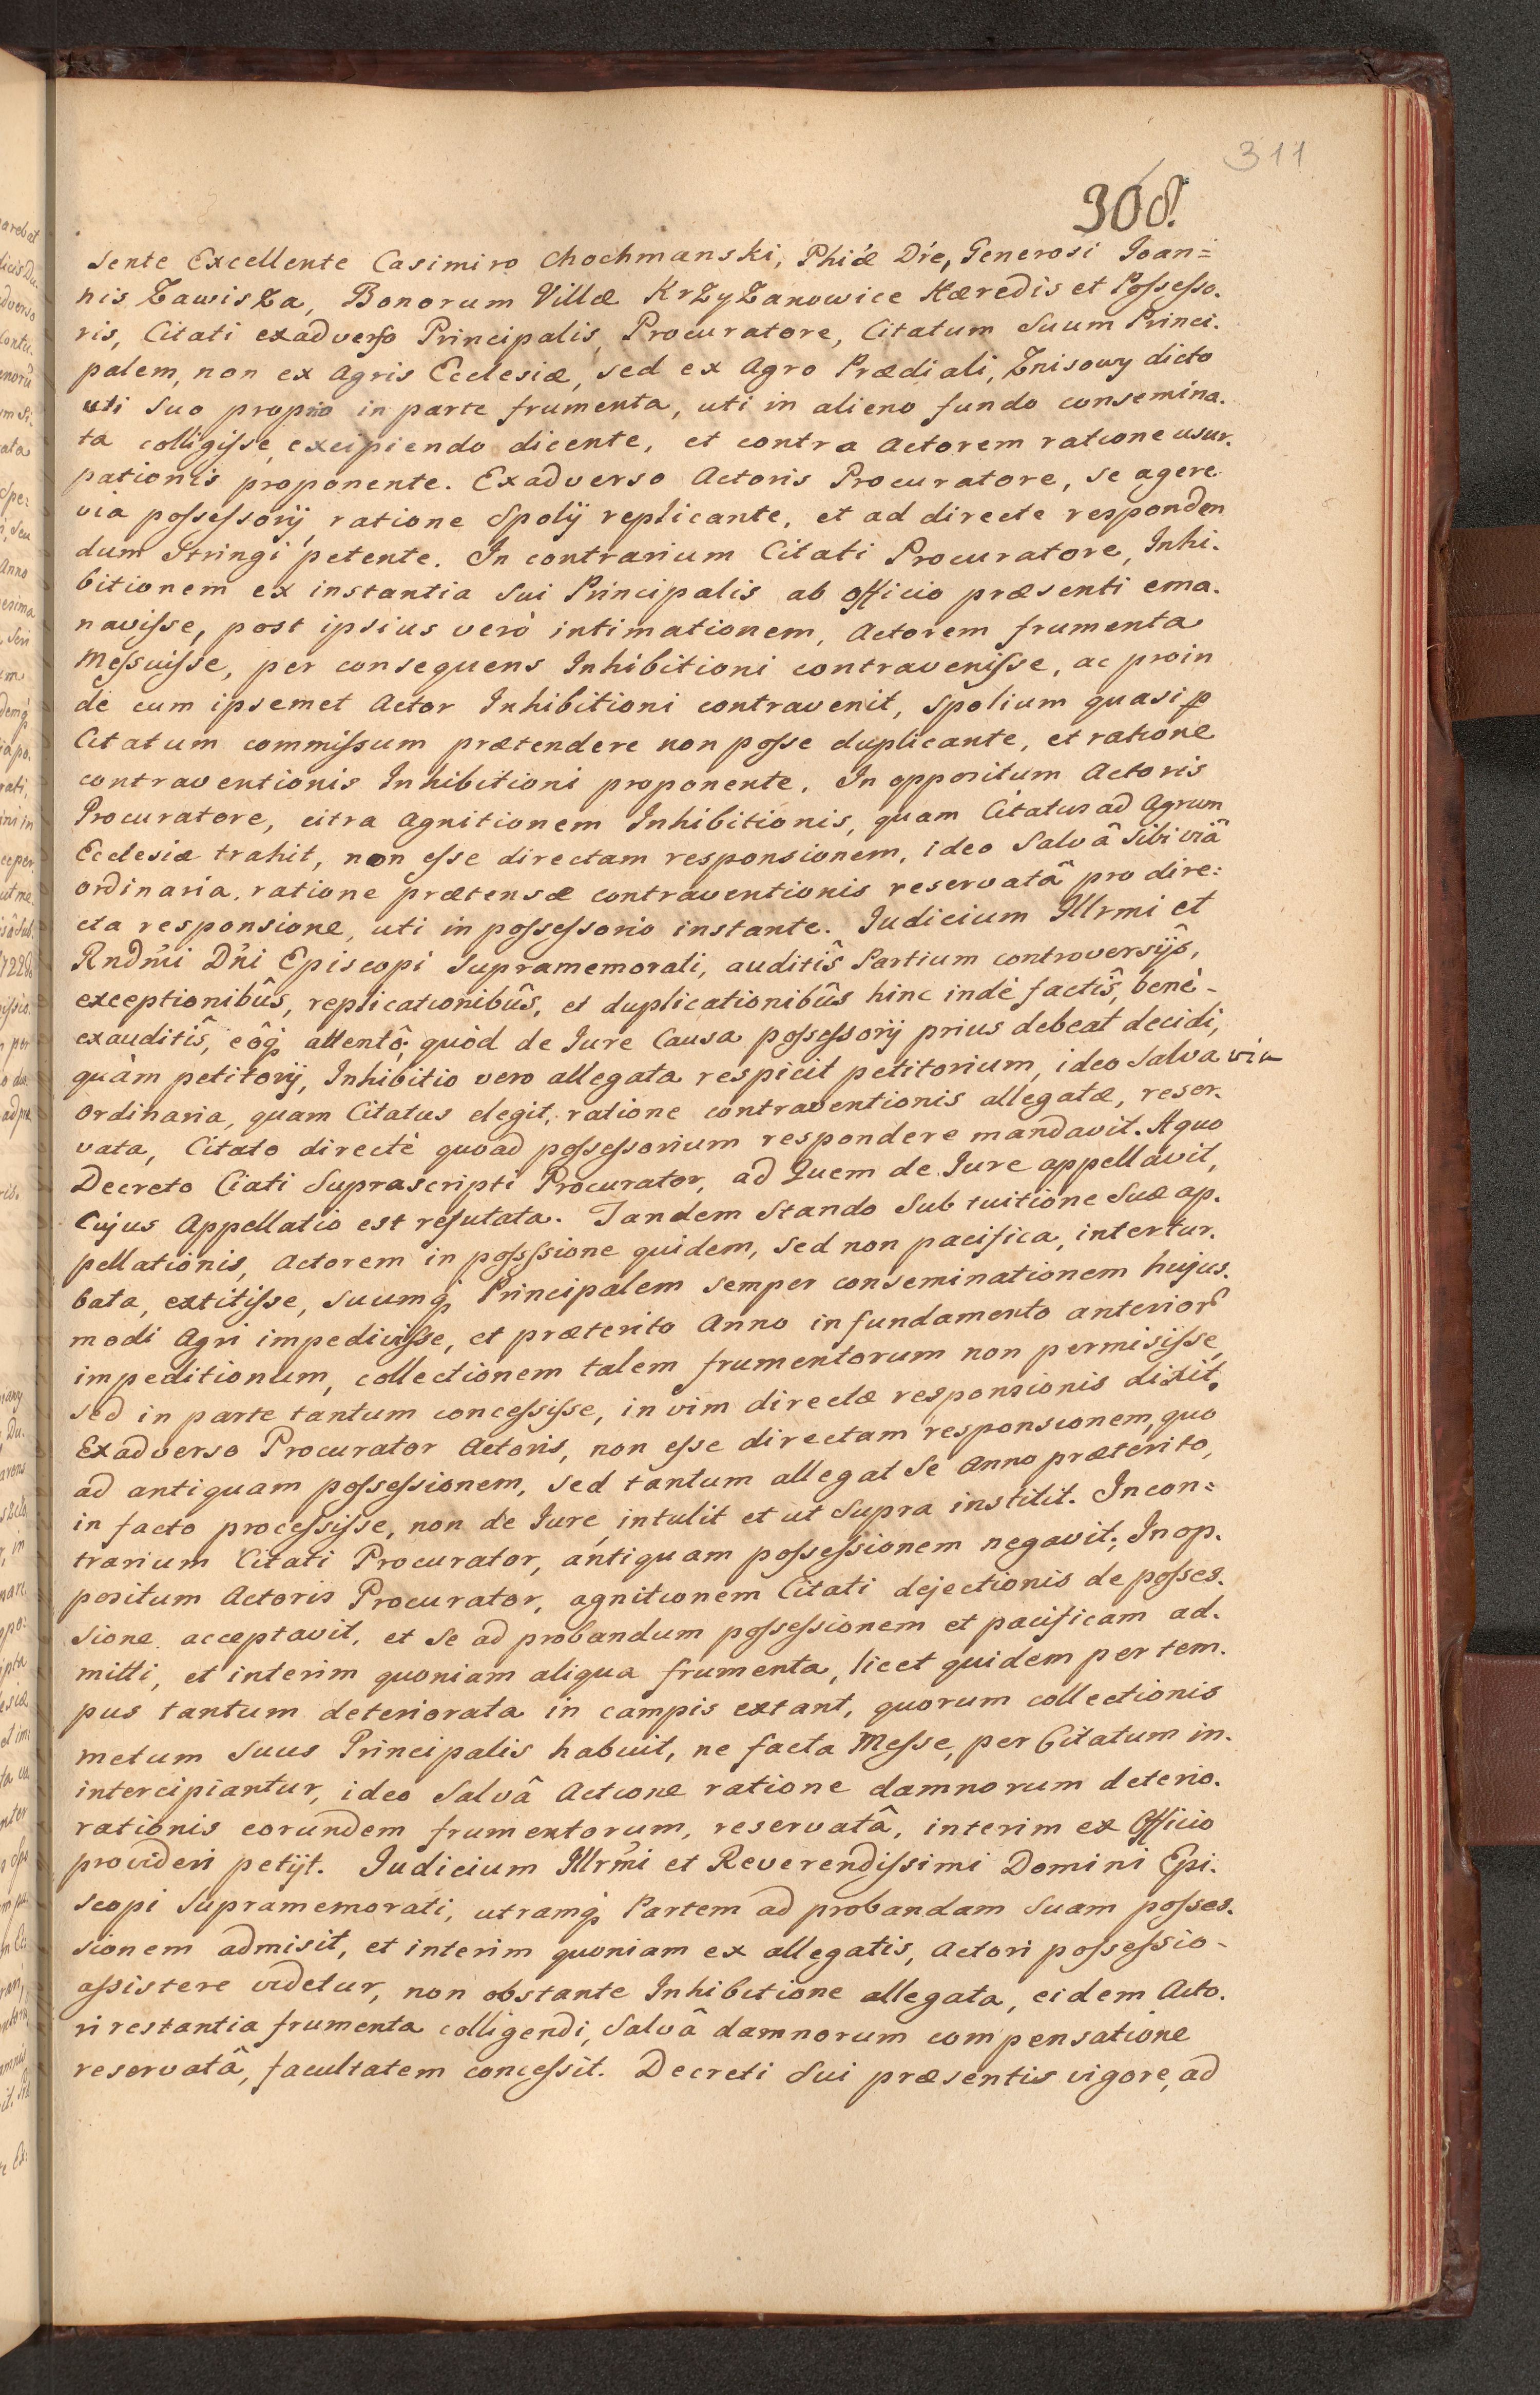 311
308.
sente Excellente Casimiro Chochmanski, Phiæ Dre, Generosi Joan=
nis Zawisza, Bonorum Villæ Krzyzanowice Hæredis et Possesso.
ris, Citati exadverso Principalis, Procuratore, Citatum Suum Princi.
palem, non ex Agris Ecclesiæ, sed ex Agro Prædiali, Znisowy dicto
uti suo proprio in parte frumenta, uti in alieno fundo consemina.
ta colligisse, excipiendo dicente, et contra Actorem ratione usur.
pationis proponente. Exadverso Actoris Procuratore, se agere
via possessorij ratione Spolij replicante, et ad directe responden
dum Stringi petente. In contrarium Citati Procuratore, Inhi.
bitionem ex instantia Sui Principalis ab officio præsenti ema.
navisse, post ipsius verò intimationem, Actorem frumenta
Messuisse, per consequens Inhibitioni contravenisse, ac proin
de cum ipsemet Actor Inhibitioni contravenit, Spolium quasi p
Citatum commissum prætendere non posse duplicante, et ratione
contraventionis Inhibitioni proponente. In oppositum Actoris
Procuratore, citra Agnitionem Inhibitionis, quam Citatus ad Agrum
Ecclesiæ trahit, non esse directam responsionem, ideo Salvâ Sibi viâ
ordinaria, ratione prætensæ contraventionis reservatâ pro dire:
cta responsione, uti in possessorio instante. Iudicium Illrmi et
Rndmi Dni Episcopi Supramemorati, auditis Partium controversijs,
exceptionibûs, replicationibûs, et duplicationibûs hinc indè factîs, benè-
exauditîs, eôq attentô, quòd de Iure Causa possessorij prius debeat decidi,
quàm petitorij, Inhibitio vero allegata respicit petitorium, ideo Salva via
ordinaria, quam Citatus elegit, ratione contraventionis allegatæ, reser.
vata, Citato directè quoad possessorium respondere mandavit. A quo
Decreto Ciati Suprascripti Procurator, ad Quem de Iure appellavit,
Cujus Appellatio est refutata. Tandem Stando Sub tuitione Suæ ap.
pellationis, Actorem in posssione quidem, sed non pacifica, intertur.
bata, extitisse, suumq Principalem semper conseminationem hujus.
modi Agri impedivisse, et præterito Anno in fundamento anterior
impeditionum, collectionem talem frumentorum non permisisse,
sed in parte tantum concessisse, in vim directæ responsionis dixit.
Exadverso Procurator Actoris, non esse directam responsionem, quo
ad antiquam possessionem, sed tantum allegat Se Anno præterito,
in facto processisse, non de Iure, intulit et ut Supra institit. In con=
trarium Citati Procurator, antiquam possessionem negavit; In op.
positum Actoris Procurator, agnitionem Citati dejectionis de posses.
sione acceptavit, et Se ad probandum possessionem et pacificam ad.
mitti, et interim quoniam aliqua frumenta, licet quidem per tem.
pus tantum deteriorata in campis extant, quorum collectionis
metum Suus Principalis habuit, ne facta Messe, per Citatum in.
intercipiantur, ideo Salvâ Actione ratione damnorum deterio.
rationis eorundem frumentorum, reservatâ, interim ex Officio
provideri petijt. Iudicium Illrmi et Reverendissimi Domini Epi.
scopi Supramemorati, utramq Partem ad probandam Suam posses.
sionem admisit, et interim quoniam ex allegatis, Actori possessio-
assistere videtur, non obstante Inhibitione allegata, eidem Acto.
ri restantia frumenta colligendi, Salvâ damnorum compensatione
reservatâ, facultatem concessit. Decreti Sui præsentis vigore, ad